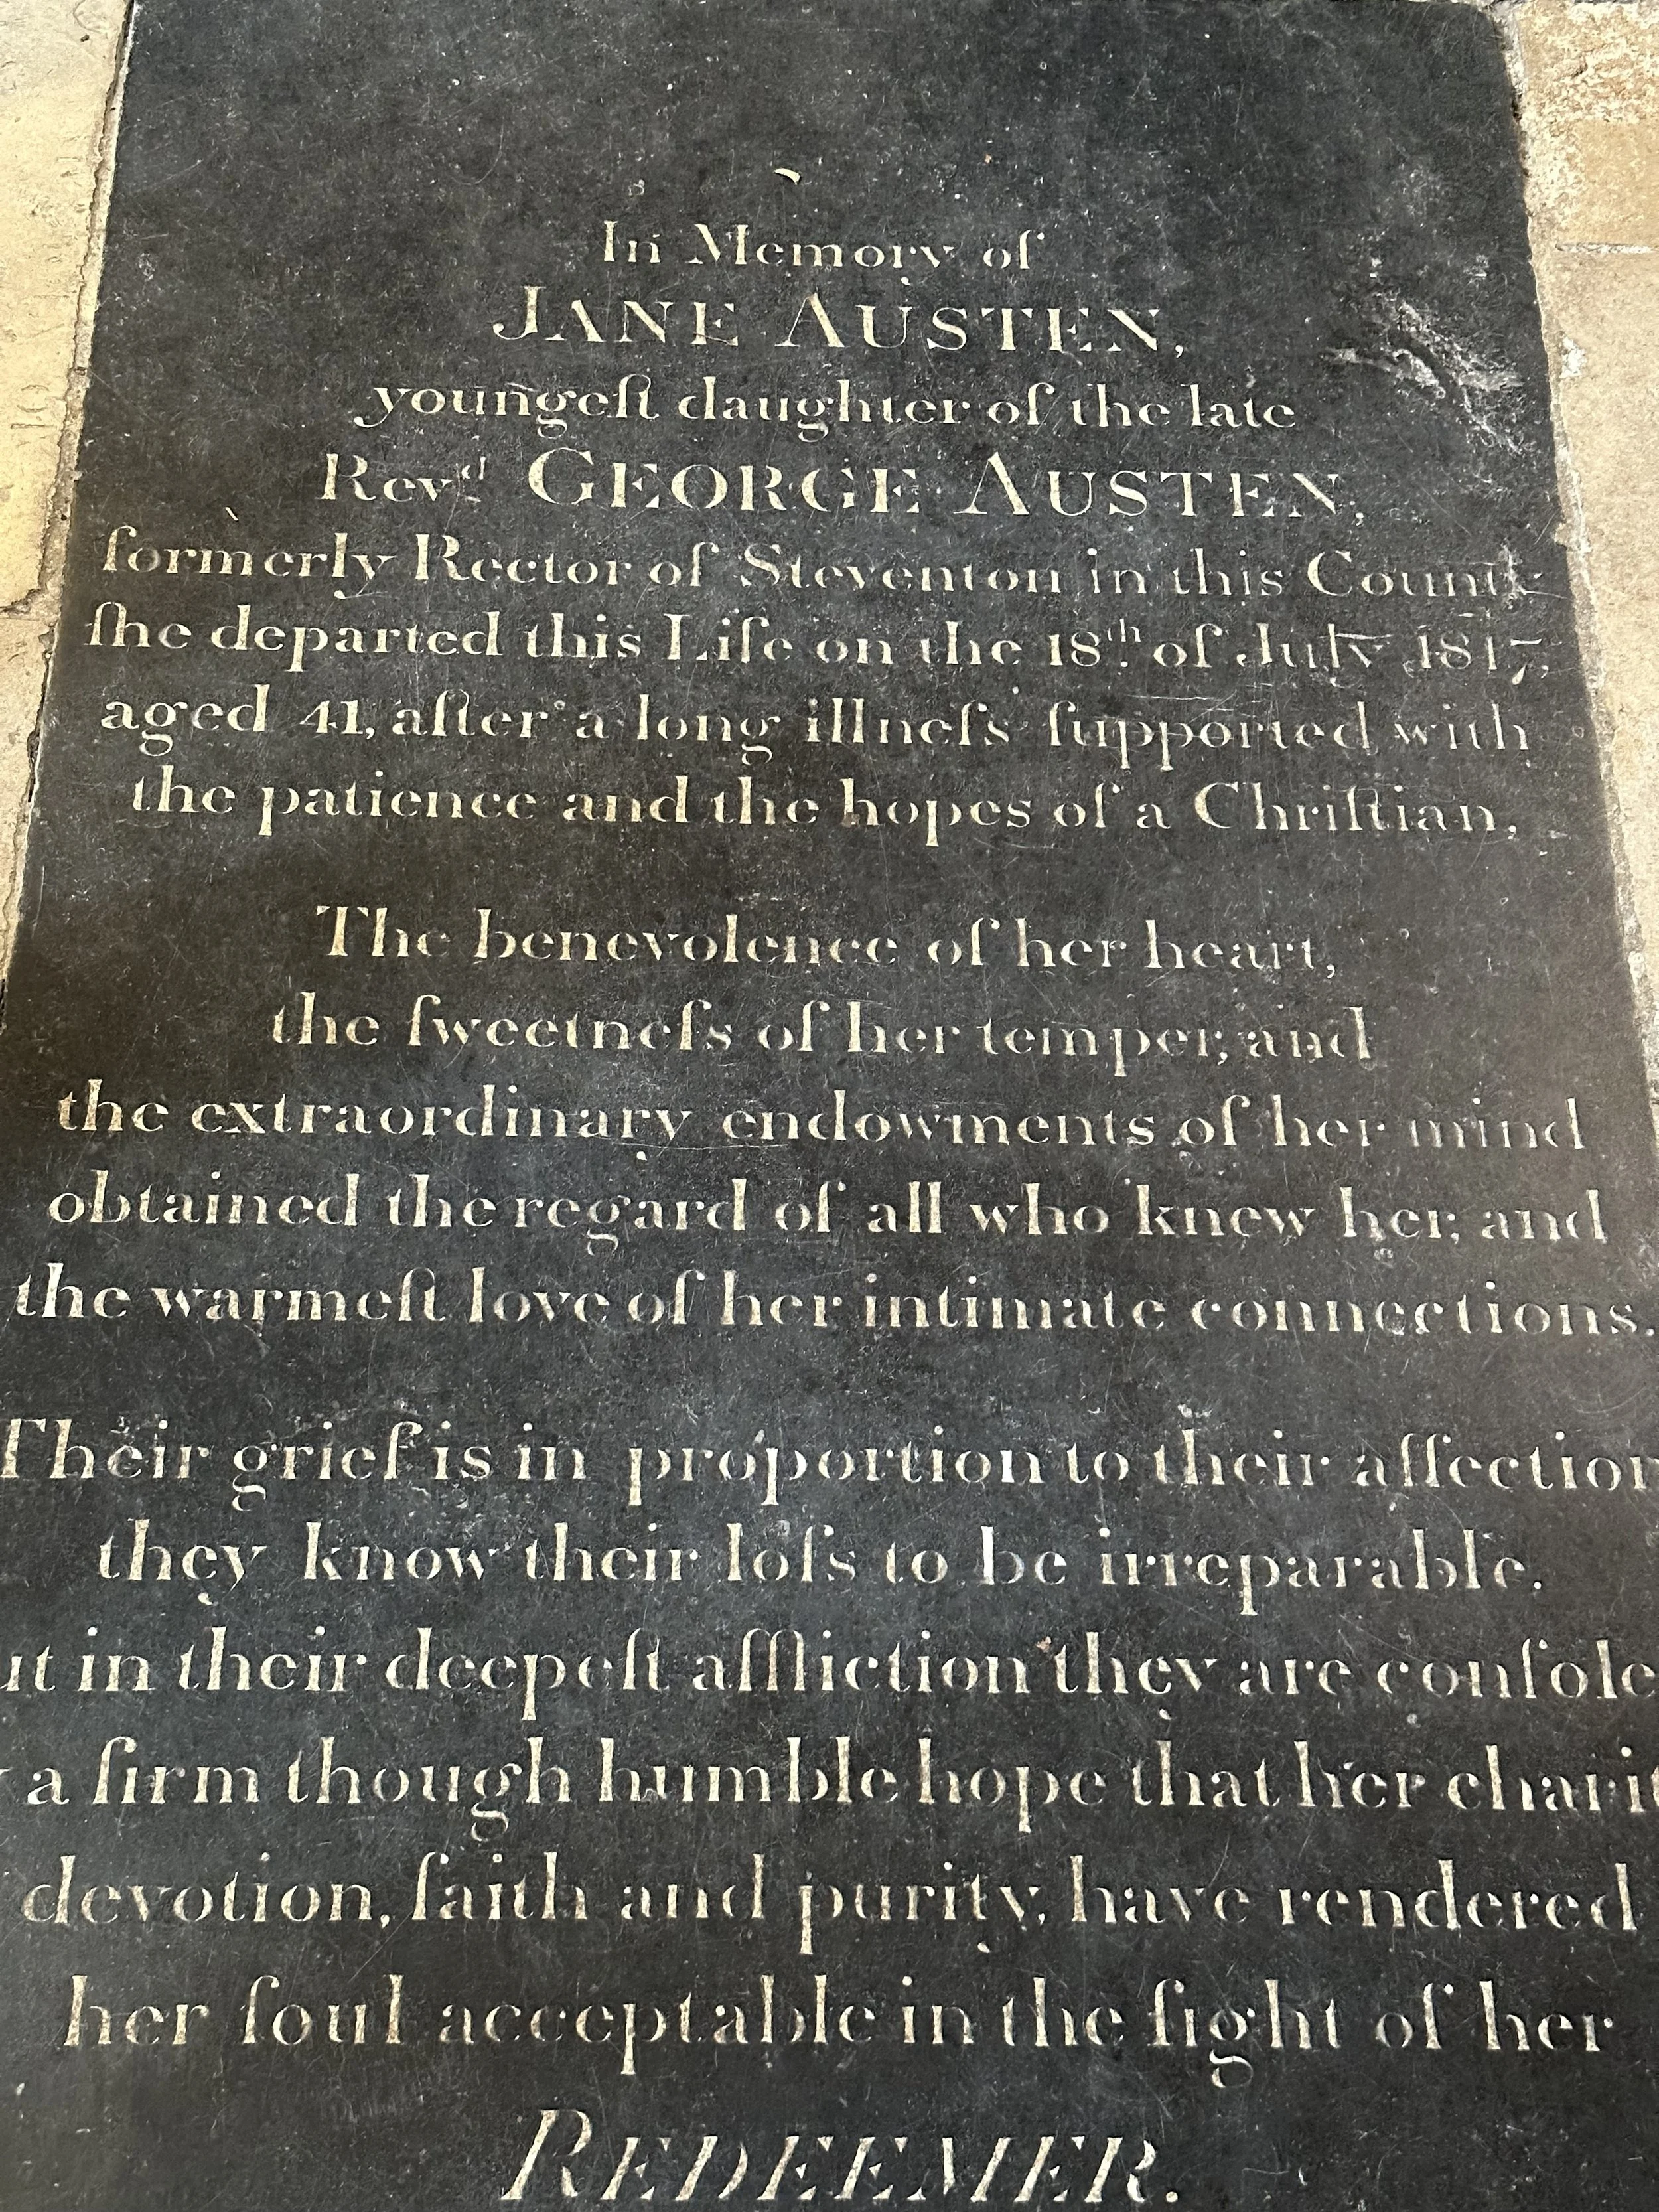 In Memory of
JANE AUSTEN,
youngeſt daughter of the late
Revᵈ GEORGE AUSTEN,
formerly Rector of Steventon in this County
ſhe departed this Life on the 18ᵗʰ of July 1817,
aged 41, after a long illneſs ſupported with
the patience and the hopes of a Chriſtian.
The benevolence of her heart,
the ſweetneſs of her temper, and
the extraordinary endowments of her mind
obtained the regard of all who knew her, and
the warmeſt love of her intimate connections.
Their grief is in proportion to their affection
they know their loſs to be irreparable.
ut in their deepeſt affliction they are conſole
a firm though humble hope that her charit
devotion, faith and purity, have rendered
her ſoul acceptable in the ſight of her
REDEEMER.